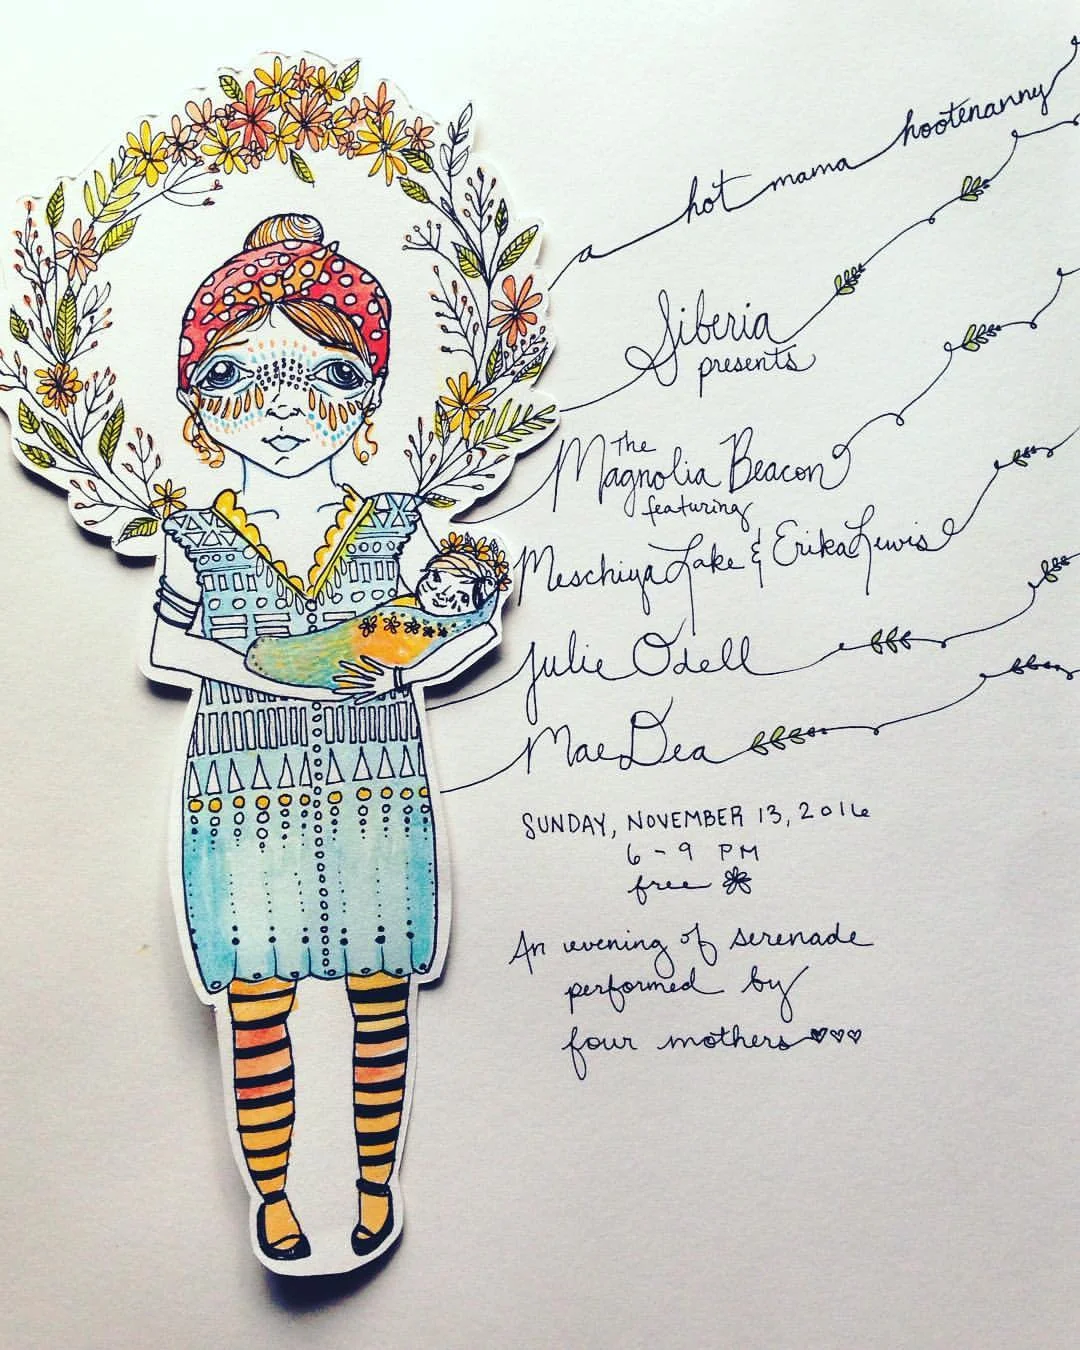 a hot mama hootenanny
Siberia
presents
The
Magnolia Beacon
featuring
Meschiya Lake & Erika Lewis
Julie Odell
Mae Dea
SUNDAY, NOVEMBER 13, 2016
6 - 9 PM
free
An evening of serenade
performed by
four mothers